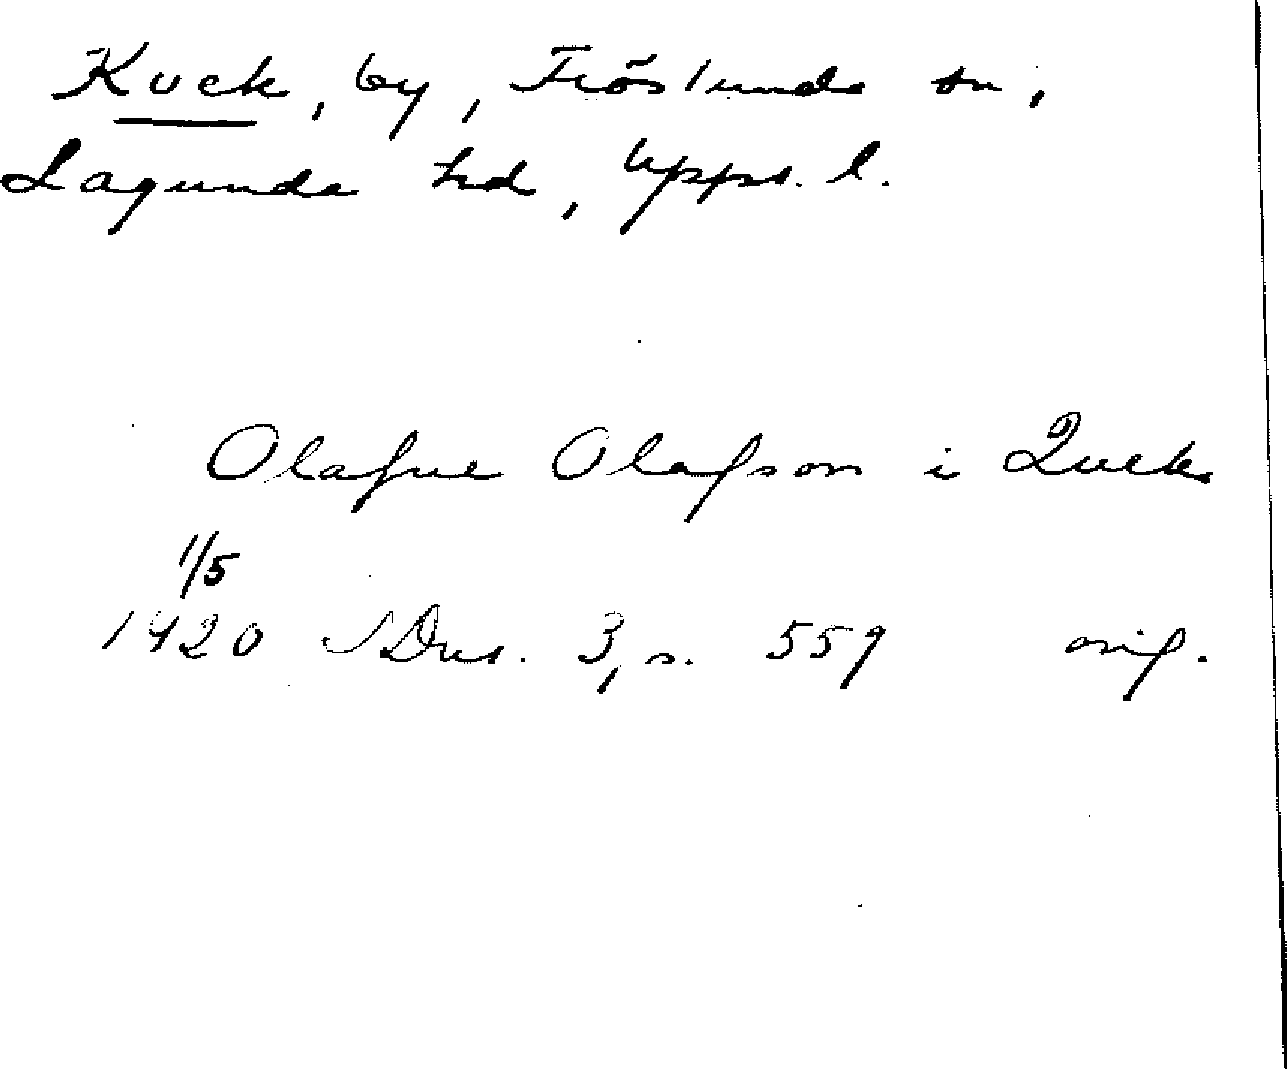 Kvek, by, Fröslunda sn,
Lagunda hd, Upps. l.
Olafue Olafson i Quek
1/5
1420 SDns. 3, s. 559 orig.